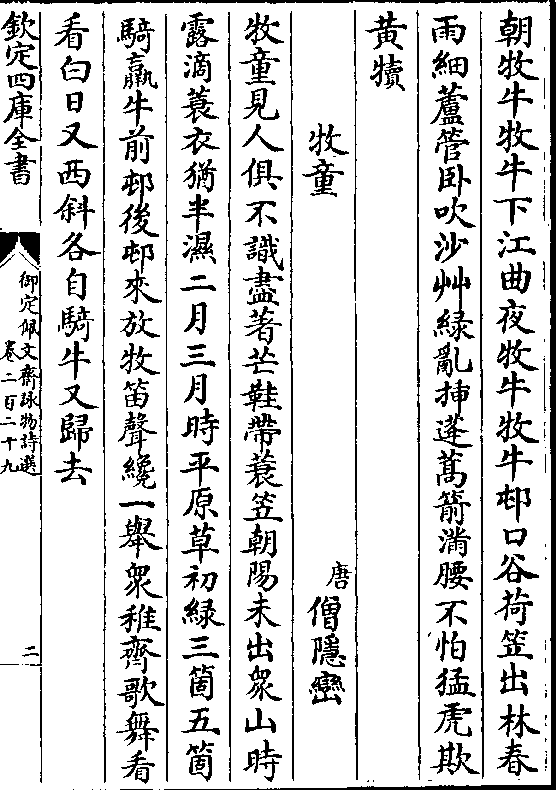 朝牧牛牧牛下江曲夜牧牛牧牛邨口谷荷笠出林春
雨細蘆管卧吹沙艸緑亂揷蓬蒿箭滿腰不怕猛虎欺
黄犢
牧童
唐
僧隱巒
牧童見人俱不識盡著芒鞋帶蓑笠朝陽未出衆山時
露滴蓑衣猶半濕二月三月時平原草初緑三箇五箇
騎羸牛前邨後邨來放牧笛聲纔一舉衆稚齊歌舞看
看白日又西斜各自騎牛又歸去
欽定四庫全書
御定佩文齋詠物詩選
卷二百二十九
二